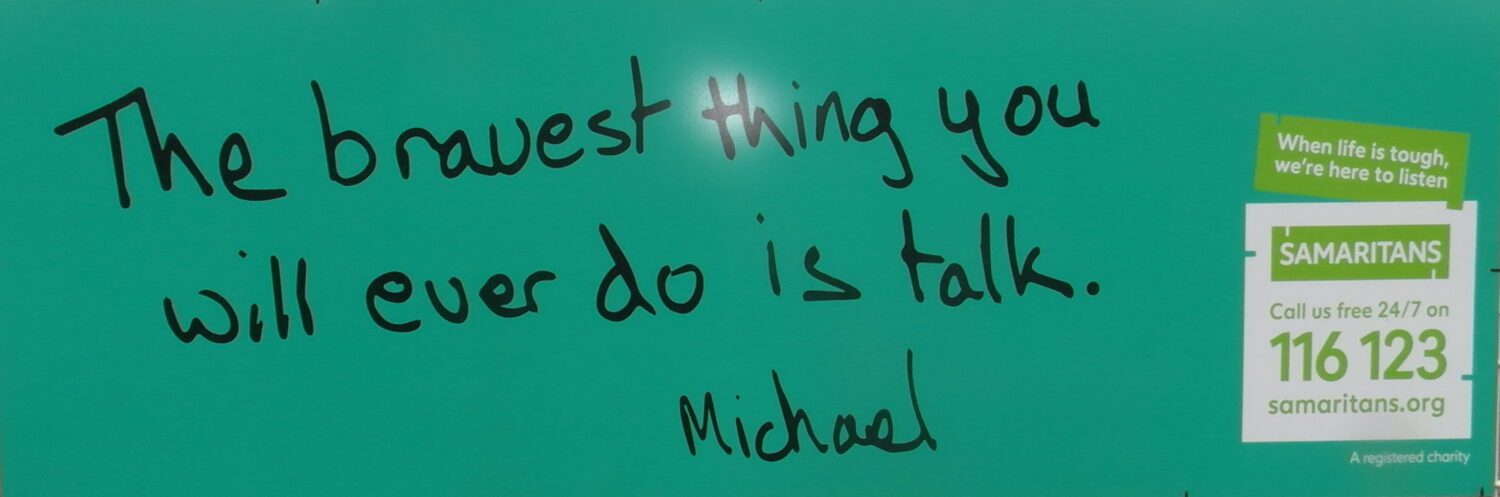 The bravest thing you
will ever do is talk.
Michael
When life is tough,
we're here to listen
SAMARITANS
Call us free 24/7 on
116 123
samaritans.org
A registered charity